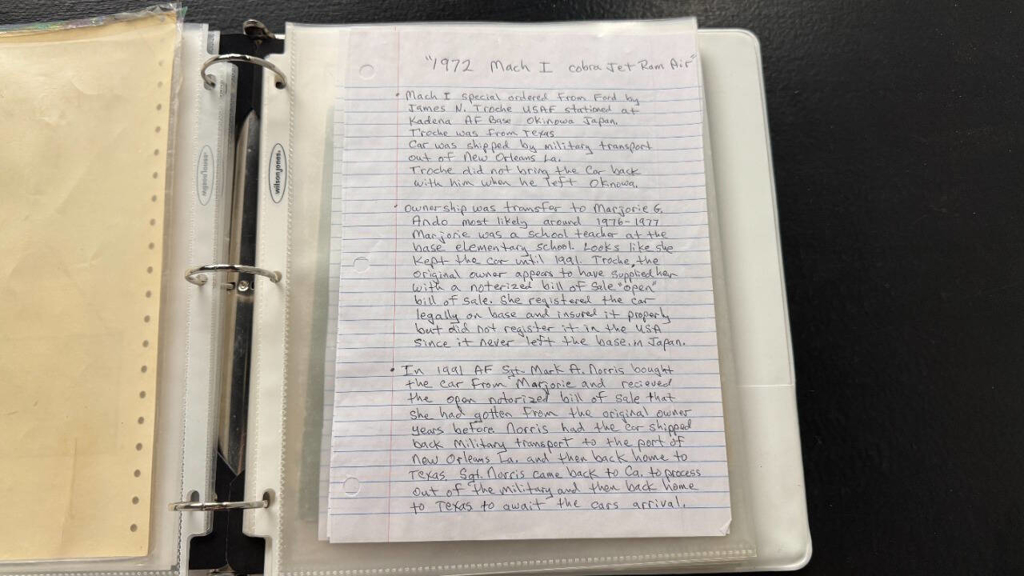 "1972 Mach I cobra Jet Ram Air"
• Mach I special ordered from Ford by
James N. Troche USAF stationed at
Kadena AF Base Okinowa Japan.
Troche was from Texas
Car was shipped by military transport
out of New Orleans La.
Troche did not bring the Car back
with him when he left Okinowa.
• Ownership was transfer to Marjorie G.
Ando most likely around 1976-1977
Marjorie was a school teacher at the
base elementary school. Looks like she
kept the car until 1991. Troche, the
original owner appears to have supplied her
with a noterized bill of sale "open"
bill of sale. She registered the car
legally on base and insured it properly
but did not register it in the USA
since it never left the base in Japan.
• In 1991 AF Sgt. Mark A. Norris bought
the car from Marjorie and recieved
the open notorized bill of sale that
she had gotten from the original owner
years before Norris had the car shipped
back Military transport to the port of
New Orleans La. and then back home to
Texas. Sgt. Norris came back to Ca. to process
out of the military and then back home
to Texas to await the cars arrival.
wilson jones
wilson jones